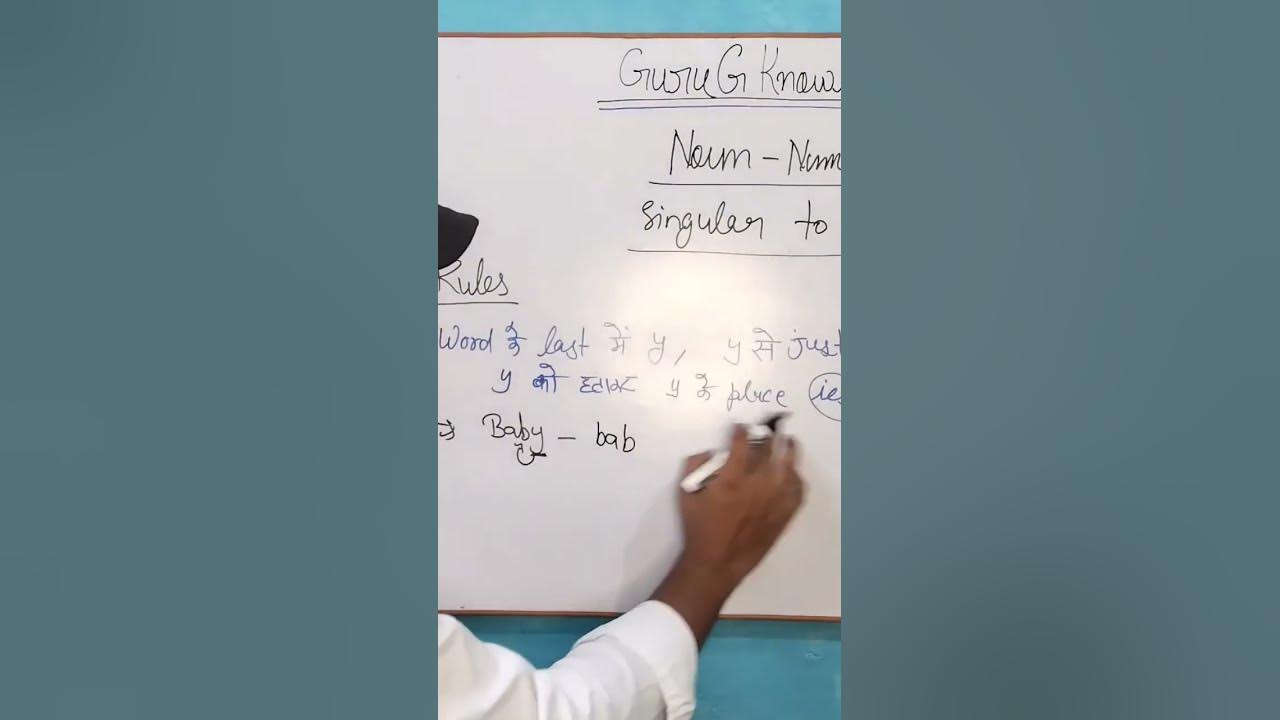 GuruG Know
Noun - Num
Singular to
Rules
Word के last में y, y से just
y को हटाकर y के place ies
⇒ Baby - bab